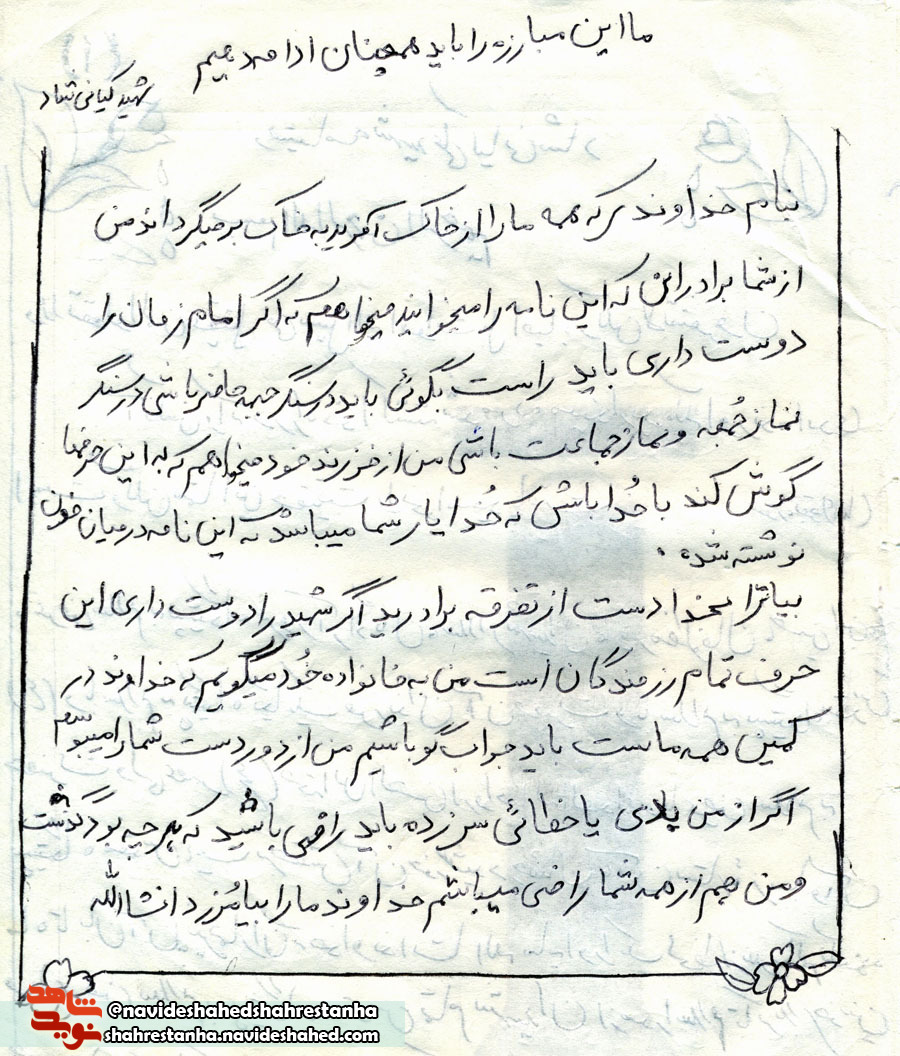 ما این مبارزه را باید همچنان ادامه دهیم
شهید کیانی نژاد
بنام خداوندی که همه ما را از خاک آفرید به خاک برمیگرداند من
از شما برادرانی که این نامه را میخوانید میخواهم که اگر امام زمان را
دوست داری باید راست بگوئی باید در سنگر جبهه حاضر باشی در سنگر
نماز جُمعه و نماز جماعت باشی من از فرزند خود میخواهم که به این حرفها
گوش کند با خُدا باش که خُدا یار شما میباشد که این نامه در میان خون
نوشته شده.
بیائید بخدا دست از تفرقه بردارید اگر شهید را دوست داری این
حرف تمام رزمندگان است من به خانواده خُود میگویم که خداوند در
کمین همه ماست باید جوابگو باشیم من از دور دست شما را میبوسم
اگر از من یا خطائی سر زده باید راضی باشید که هر چه بود گذشت
و من هم از همه شما راضی میباشم خداوند ما را بیامُرزد انشاالله
شاهد
نوید
©navideshahedshahrestanha
shahrestanha.navideshahed.com